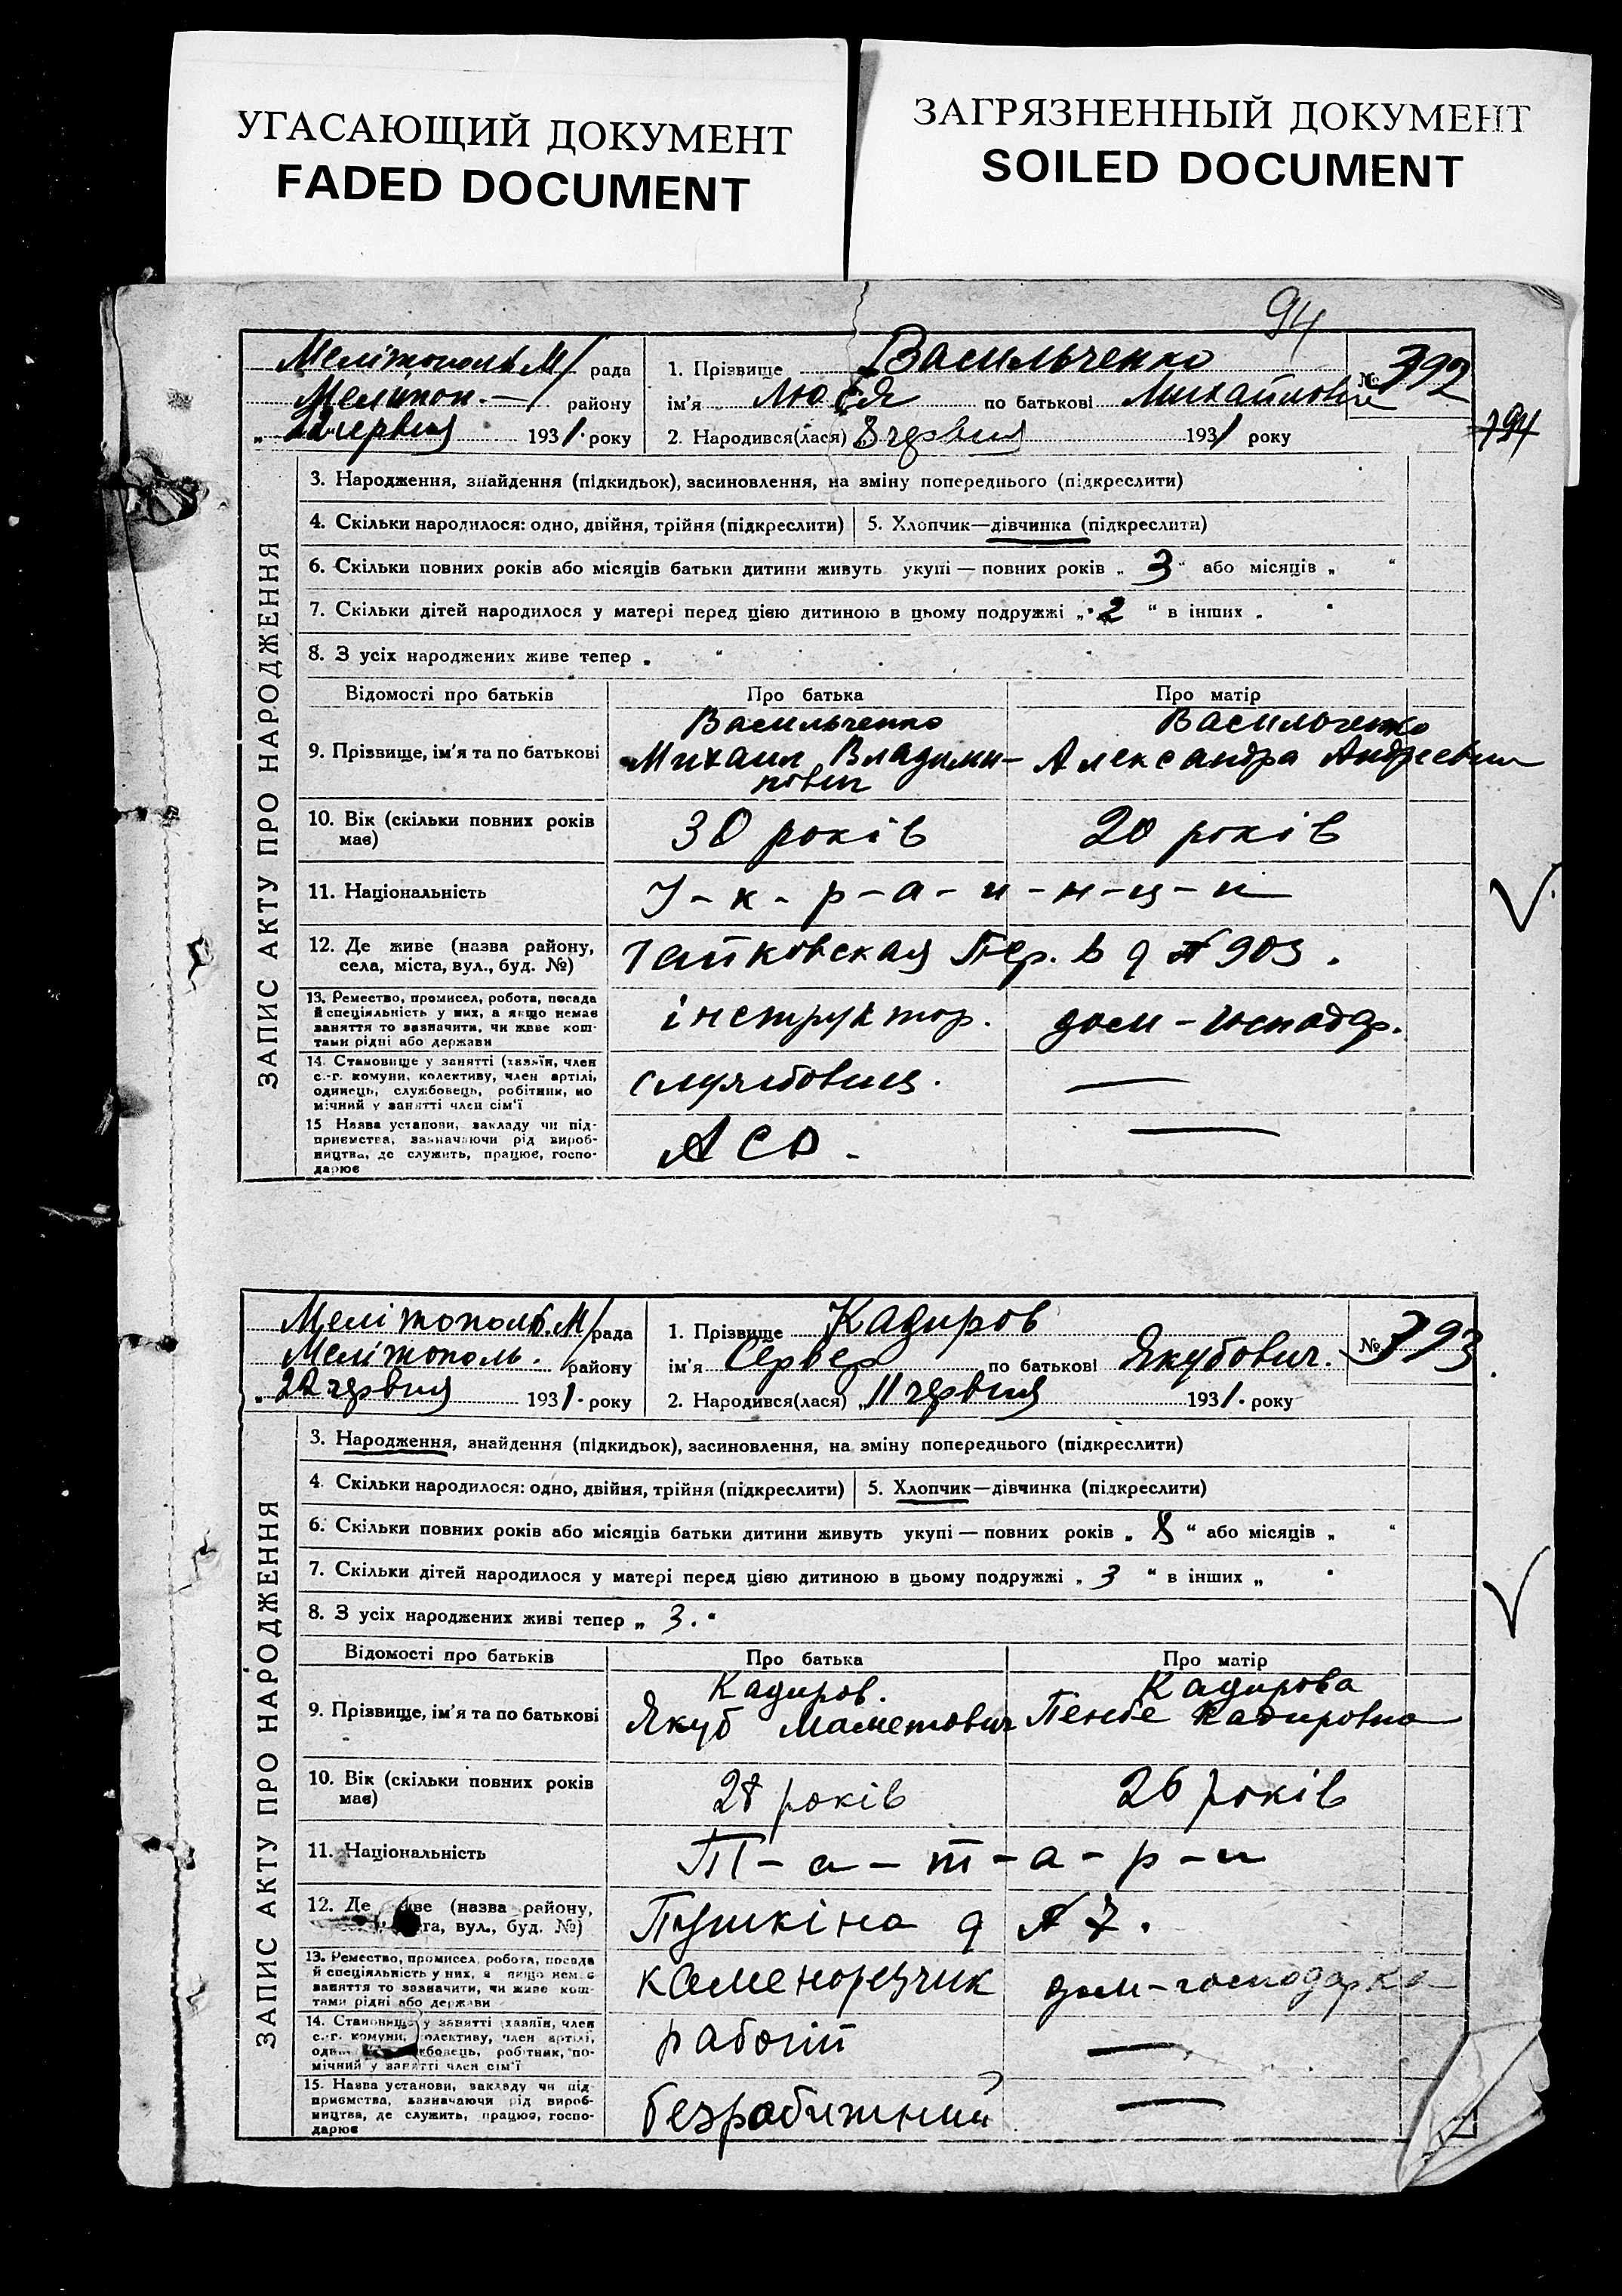 УГАСАЮЩИЙ ДОКУМЕНТ
FADED DOCUMENT
ЗАГРЯЗНЕННЫЙ ДОКУМЕНТ
SOILED DOCUMENT
94
Мелітополь М/ рада
Мелітоп. район
22 червня 1931. року
1. Прізвище Васильченко
ім'я Любя по батькові Михайловна
2. Народився(лася) „8 червня 1931 року
№ 392
794
ЗАПИС АКТУ ПРО НАРОДЖЕННЯ
3. Народження, знайдення (підкидьок), засиновлення, на зміну попереднього (підкреслити)
4. Скільки народилося: одно, двійня, трійня (підкреслити) 5. Хлопчик—дівчинка (підкреслити)
6. Скільки повних років або місяців батьки дитини живуть укупі — повних років „ 3 “ або місяців „ “
7. Скільки дітей народилося у матері перед цією дитиною в цьому подружжі „ 2 “ в інших
8. З усіх народжених живе тепер „ “
Відомості про батьків Про батька Про матір
9. Прізвище, ім'я та по батькові
Васильченко
Михаил Владими-
рович
Васильченко
Александра Андреевна
10. Вік (скільки повних років
має)
30 років 20 років
11. Національність У-к-р-а-и-н-ц-и
12. Де живе (назва району,
села, міста, вул., буд. №)
Пер. 903.
13. Ремество, промисел, робота, посада
й спеціяльність у них, а якщо немає
заняття то зазначити, чи живе кош-
тами рідні або держави
інструктор. дом-господар.
14. Становище у занятті (хазяїн, член
с.-г. комуни, колективу, член артілі,
одинець, службовець, робітник, по
мічний у занятті член сім'ї
службовец. —
15 Назва установи, закладу чи під-
приємства, зазначаючи рід вироб-
ництва, де служить, працює, госпо-
дарює
АСО - —
Мелітополь. М/ рада
Мелітополь. району
„22 червня 1931. року
1. Прізвище Кадиров
ім'я Сервер по батькові Якубович.
2. Народився(лася) „11 червня 1931. року
№ 393
ЗАПИС АКТУ ПРО НАРОДЖЕННЯ
3. Народження, знайдення (підкидьок), засиновлення, на зміну попереднього (підкреслити)
4. Скільки народилося: одно, двійня, трійня (підкреслити) 5. Хлопчик—дівчинка (підкреслити)
6. Скільки повних років або місяців батьки дитини живуть укупі — повних років „ 8 “ або місяців „ “
7. Скільки дітей народилося у матері перед цією дитиною в цьому подружжі „ 3 “ в інших „
8. З усіх народжених живі тепер „ 3.
Відомості про батьків Про батька Про матір
9. Прізвище, ім'я та по батькові
Кадиров.
Якуб Маметович
Кадирова
Пембе Кадировна
10. Вік (скільки повних років
має)
28 років 26 років
11. Національність Т-а-т-а-р-и
12. Де живе (назва району,
міста, вул., буд. №)
Пушкіна д № 7.
13. Ремество, промисел, робота, посада
й спеціяльність у них, а якщо немає
заняття то зазначити, чи живе кош-
тами рідні або держави
каменорезчик дом-господарка
14. Становище у занятті (хазяїн, член
с.-г. комуни, колективу, член артілі,
службовець, робітник, по-
мічний у занятті член сім'ї
рабочій —
15. Назва установи, закладу чи під
приємства, зазначаючи рід вироб-
ництва, де служить, працює, госпо-
дарює
безработний —